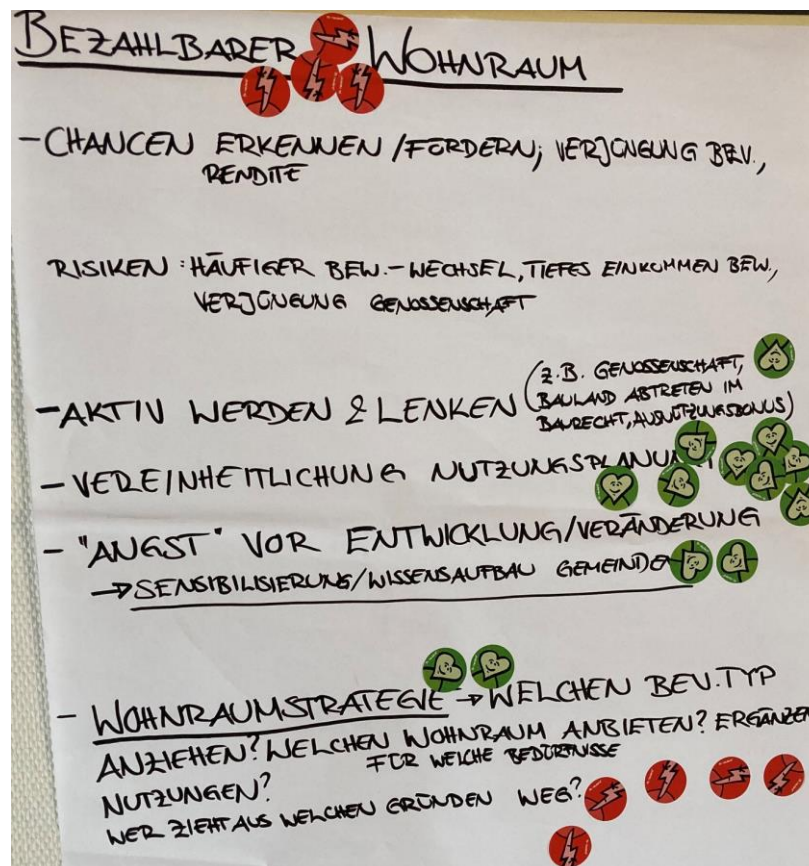 BEZAHLBARER WOHNRAUM
- CHANCEN ERKENNEN / FÖRDERN; VERJÜNGUNG BEV.,
RENDITE
RISIKEN: HÄUFIGER BEW.-WECHSEL, TIEFES EINKOMMEN BEW.,
VERJÜNGUNG GENOSSENSCHAFT
- AKTIV WERDEN & LENKEN (Z.B. GENOSSENSCHAFT,
BAULAND ABTRETEN IM
BAURECHT, AUSNÜTZUNGSBONUS)
- VEREINHEITLICHUNG NUTZUNGSPLANUN
- "ANGST" VOR ENTWICKLUNG/VERÄNDERUNG
→ SENSIBILISIERUNG/WISSENSAUFBAU GEMEINDE
- WOHNRAUMSTRATEGIE → WELCHEN BEV.TYP
ANZIEHEN? WELCHEN WOHNRAUM ANBIETEN? ERGÄNZEN
FÜR WELCHE BEDÜRFNISSE
NUTZUNGEN?
WER ZIEHT AUS WELCHEN GRÜNDEN WEG?